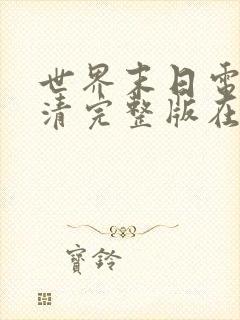 世界末日电
清完整版在
寶鈴